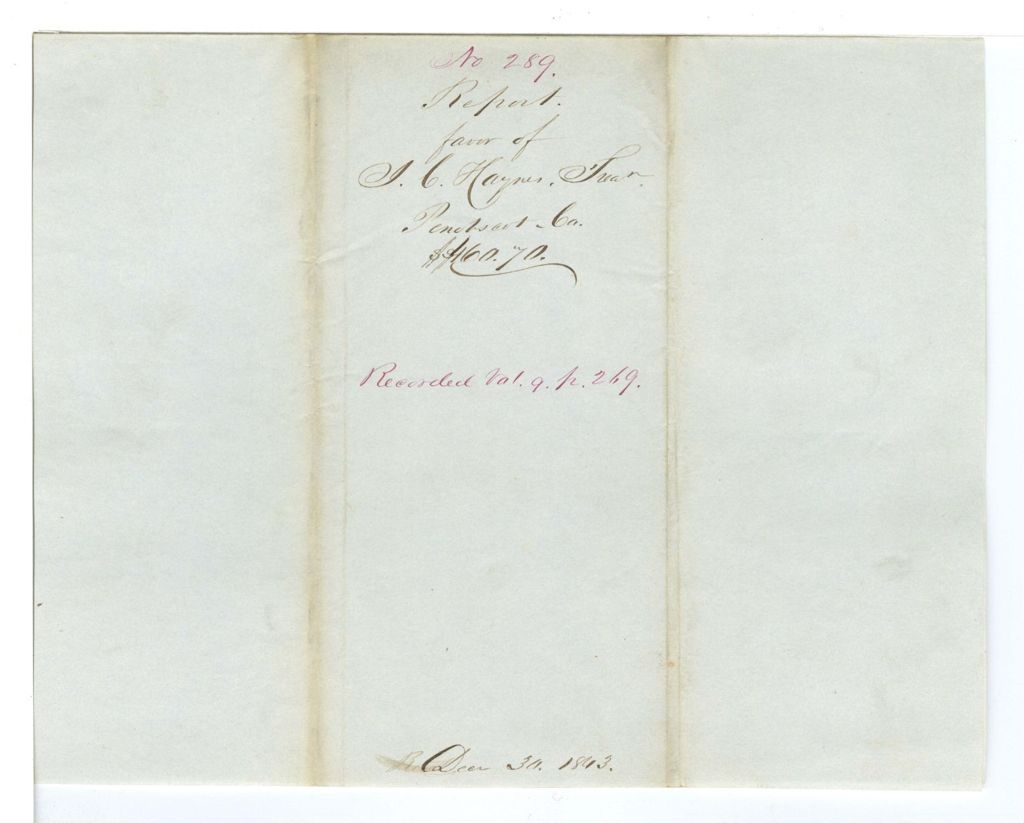 No 289.
Report.
favor of
J. C. Haynes, Trear.
Penobscot Co.
$460.70.
Recorded Vol. 9. p. 269.
Decr 30. 1843.